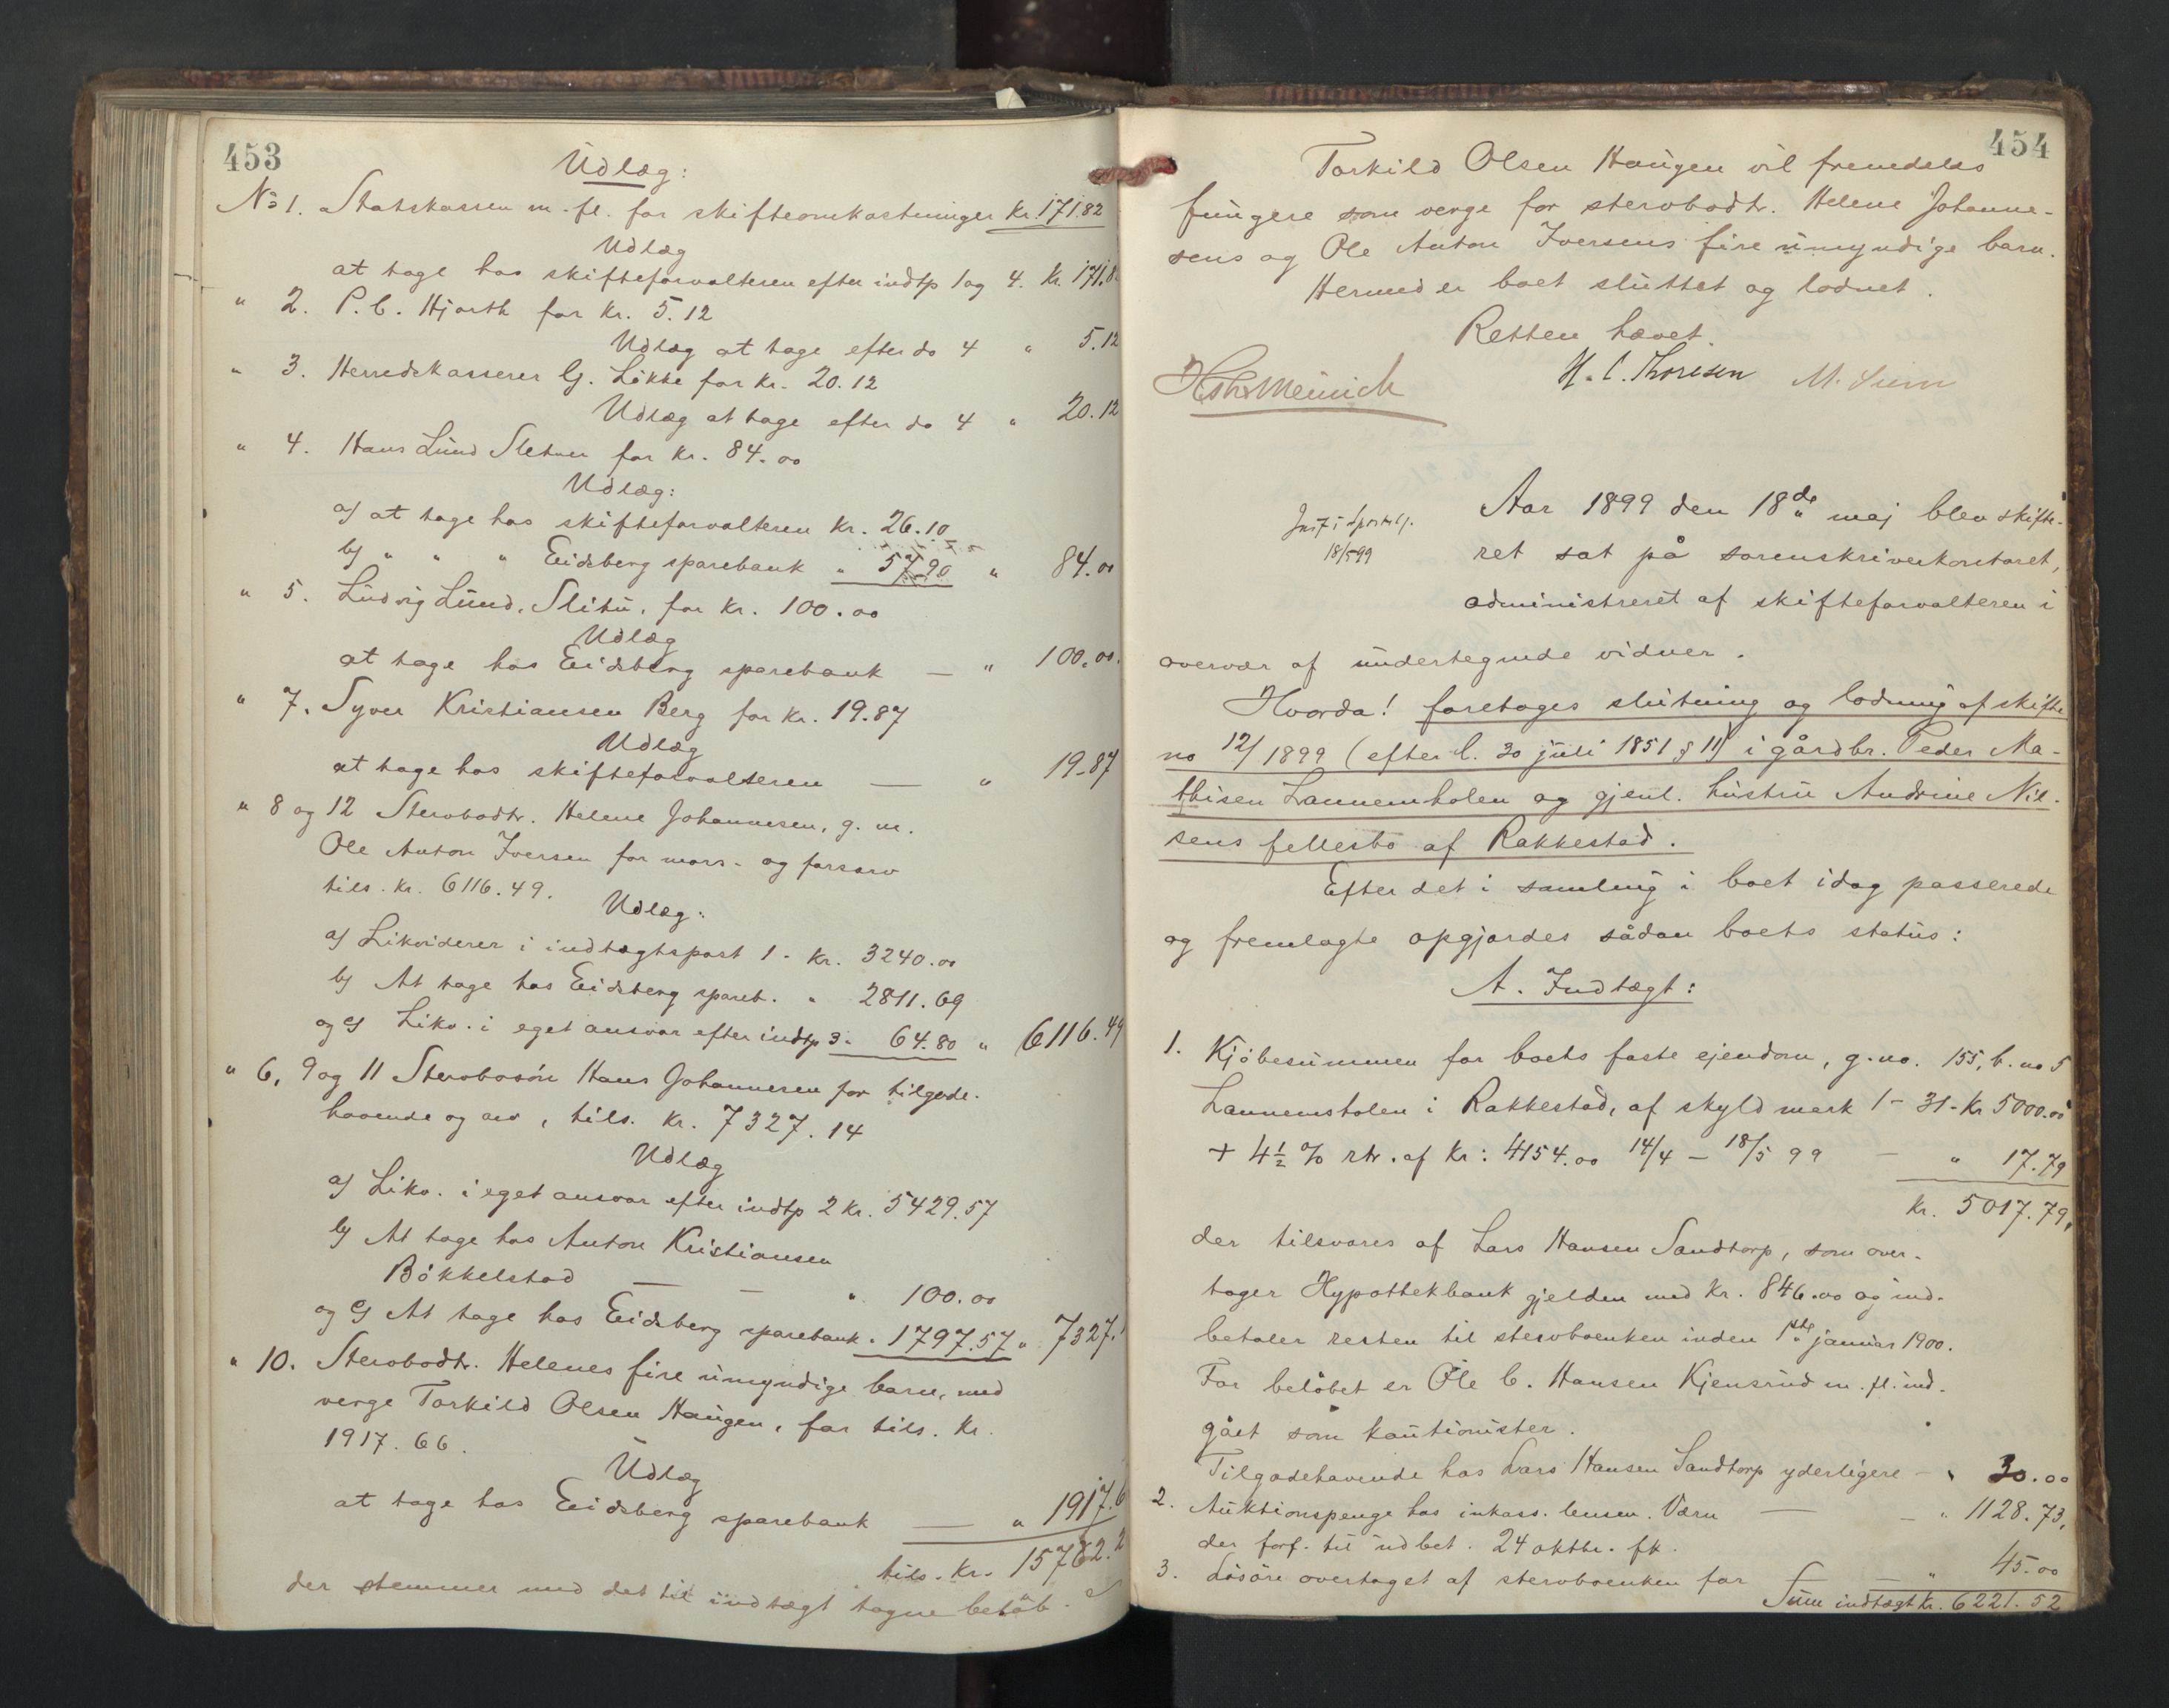 453
Udlæg:
No 1. Statskassen m. fl. for skifteomkostninger Kr. 171.82
Udlæg
at tage hos skifteforvalteren efter indtp 1 og 4. Kr. 171.8
" 2. P. C. Hjorth for Kr. 5.12
Udlæg at tage efter do 4 " 5.12
" 3. Herredskasserer G. Løkke for Kr. 20.12
Udlæg at tage efter do 4 " 20.12
" 4. Hans Lund Sletner for Kr. 84.00
Udlæg:
a) at tage hos skifteforvalteren Kr. 26.10
b) " " " Eidsberg sparebank " 57.90 " 84.00
" 5. Ludvig Lund, Slitu, for Kr. 100.00
Udlæg
at tage hos Eidsberg sparebank — " 100.00.
" 7. Syver Kristiansen Berg for Kr. 19.87
Udlæg
at tage hos skifteforvalteren — " 19.87
" 8 og 12 Stervbodtr. Helene Johannesen, g. m.
Ole Anton Iversen for mors- og farsarv
tils. Kr. 6116.49.
Udlæg:
a) Likviderer i indtægtspost 1 - Kr. 3240.00
b) At tage hos Eidsberg spareb. " 2811.69
og c) Likv. i eget ansvar efter indtp 3 " 64.80 " 6116.49
" 6, 9 og 11 Stervbosön Hans Johannesen for tilgode-
havende og arv, tils. Kr. 7327.14
Udlæg
a) Likv. i eget ansvar efter indtp 2 Kr. 5429.57
b) At tage hos Anton Kristiansen
Bökkelstad — — " 100.00
og c) At tage hos Eidsberg sparebank " 1797.57 " 7327.1
" 10. Stervbodtr. Helenes fire umyndige barn, med
verge Torkild Olsen Haugen, for tils. Kr.
1917.66.
Udlæg
at tage hos Eidsberg sparebank — " 1917.6
tils. Kr. 15762.2
der stemmer med det til indtægt tagne belöb.
454
Torkild Olsen Haugen vil fremdeles
fungere som verge for stervbodtr. Helene Johanne-
sens og Ole Anton Iversens fire umyndige barn.
Hermed er boet sluttet og lodnet.
Retten hævet.
H. C. Thoresen
Aar 1899 den 18de maj blev skifte-
18/5 99
ret sat på sorenskriverkontoret,
administreret af skifteforvalteren i
overvær af undertegnede vidner.
Hvorda! foretoges slutning og lodning af skifte
no 12/1899 (efter l. 30 juli 1851 § 11) i gårdbr. Peder Ma-
thisen Lannemholen og gjenl. hustru Andrine Nil-
sens fellesbo af Rakkestad.
Efter det i samling i boet idag passerede
og fremlagte opgjordes sådan boets status:
A. Indtægt:
1. Kjöbesummen for boets faste ejendom, g.no. 155, b.no 5
Lannemholen i Rakkestad, af skyld mark 1 - 31 - Kr 5000.00
+ 4½ % rtr. af Kr: 4154.00 14/4 - 18/5 99 — " 17.79
Kr. 5017.79,
der tilsvares af Lars Hansen Sandtorp, som over-
tager Hypothekbank gjelden med Kr. 846.00 og ind-
betaler resten til stervboenken inden 1ste januar 1900.
For belöbet er Ole C. Hansen Kjensrud m. fl. ind-
gået som kautionister.
Tilgodehavende hos Lars Hansen Sandtorp yderligere — " 30.00
2. Auktionspenge hos inkass. lensm.Værn — — " 1128.73,
der forf. til udbet. 24 oktbr. fk.
3. Lösöre overtaget af stervboenken for — — " 45.00
Sum indtægt Kr. 6221.52